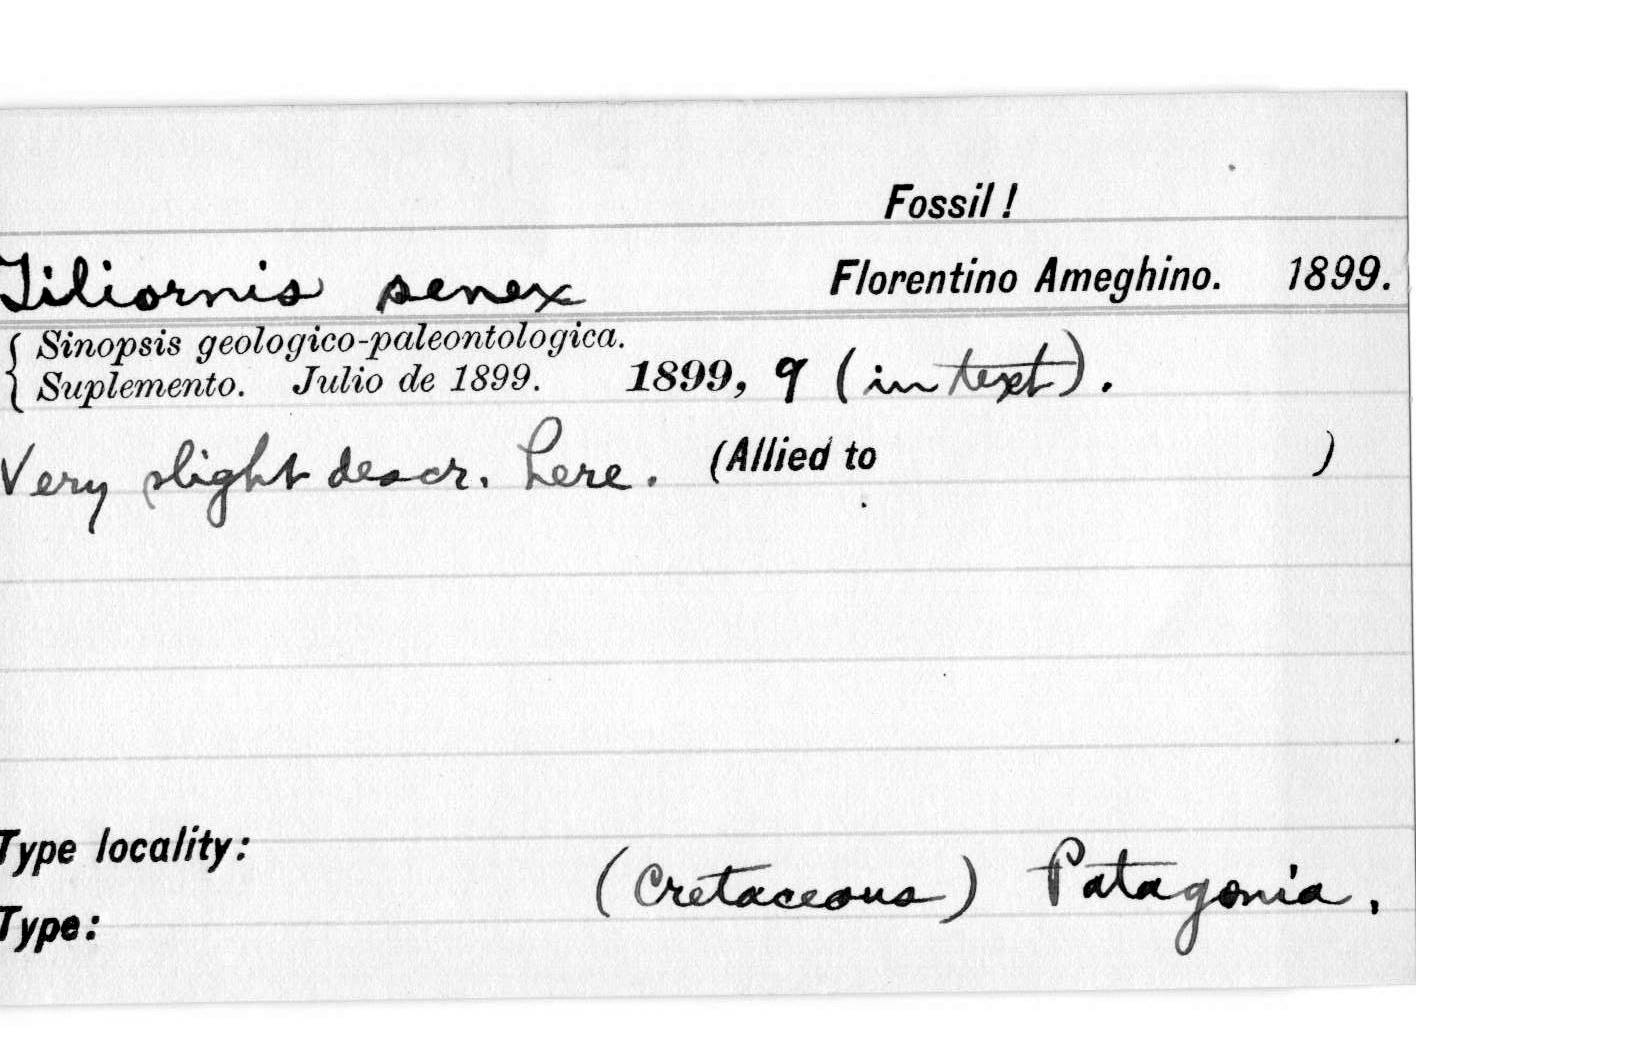 Fossil!
Tiliornis senex Florentino Ameghino. 1899.
{ Sinopsis geologico-paleontologica.
Suplemento. Julio de 1899. 1899, 9 (in text).
Very slight descr. here. (Allied to )
Type locality:
(Cretaceous) Patagonia.
Type: